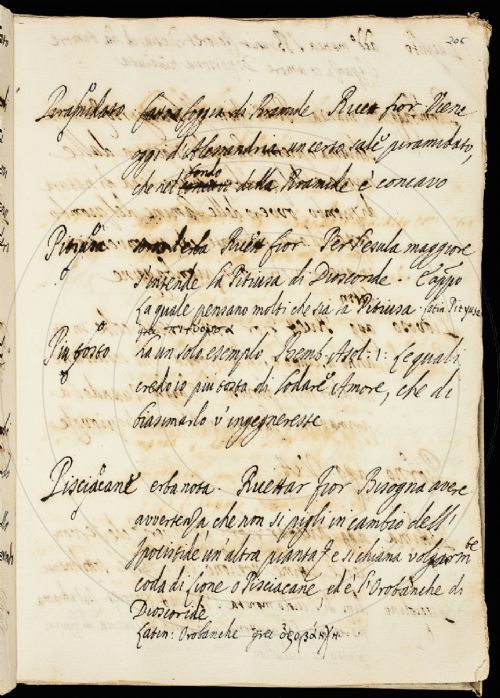 206
Piramidato. foggia di Piramide. Ricett. fior. Viene
oggi d'Alessandria un certo sale piramidato,
fondo
che nel della Piramide è concavo
Pitiusa erba Ricett. fior. Per l'esula maggiore
s'intende la Pitiusa di Dioscoride. Cappo
la quale pensano molti che sia la Pitiusa. latin Pityusa
gre πιτύουσα
Piu tosto ha un solo esempio. Bemb. Asol: 1: le quali
credo io piu tosto di lodare Amore, che di
biasimarlo v'ingegnereste
Pisciacane erba nota. Ricettar. fior. Bisogna avere
avvertenza che non si pigli in cambio dell'
Ipolistide un'altra pianta e si chiama volgarmte
coda di lione o Pisciacane, ed è l'Orobanche di
Dioscoride
Latin: Orobanche gre ὀροβάγχη